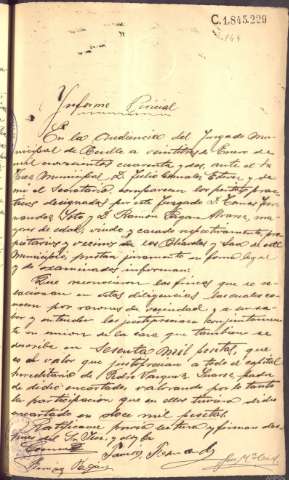 C.1.845.229
Informe Pericial
En la Audiencia del Juzgado Mu-
nicipal de Boullo a veintidos de Enero de
mil novecientos cuarenta y dos, ante el Sr
Juez Municipal D. Julio Canals y de
mi el Secretario comparecen los peritos prac-
ticos designados por este Juzgado D. Tomas Fer-
nandez Soto y D. Ramón Pegan Alvarez, ma-
yores de edad, viudo y casado respectivamente, pro-
pietarios y vecinos de los y San de este
Municipio, prestan juramento en forma legal
y de examinados informan:
Que reconocieron las fincas que se re-
lacionan en estas diligencias las cuales co-
nocen por razones de vecindad, y a su sa-
ber y entender las justiprecian conjuntamente
en union de la casa que tambien se
describe en sesenta mil pesetas, que
es el valor que justiprecian a todo el capital
hereditario de Pedro Vazquez Suarez, padre
de dicho encartado, valorando por lo tanto
la participacion que en ellas tuviera dicho
encartado en doce mil pesetas.
Ratificanse previa lectura y firman des-
pues del Sr. Juez, doy fe